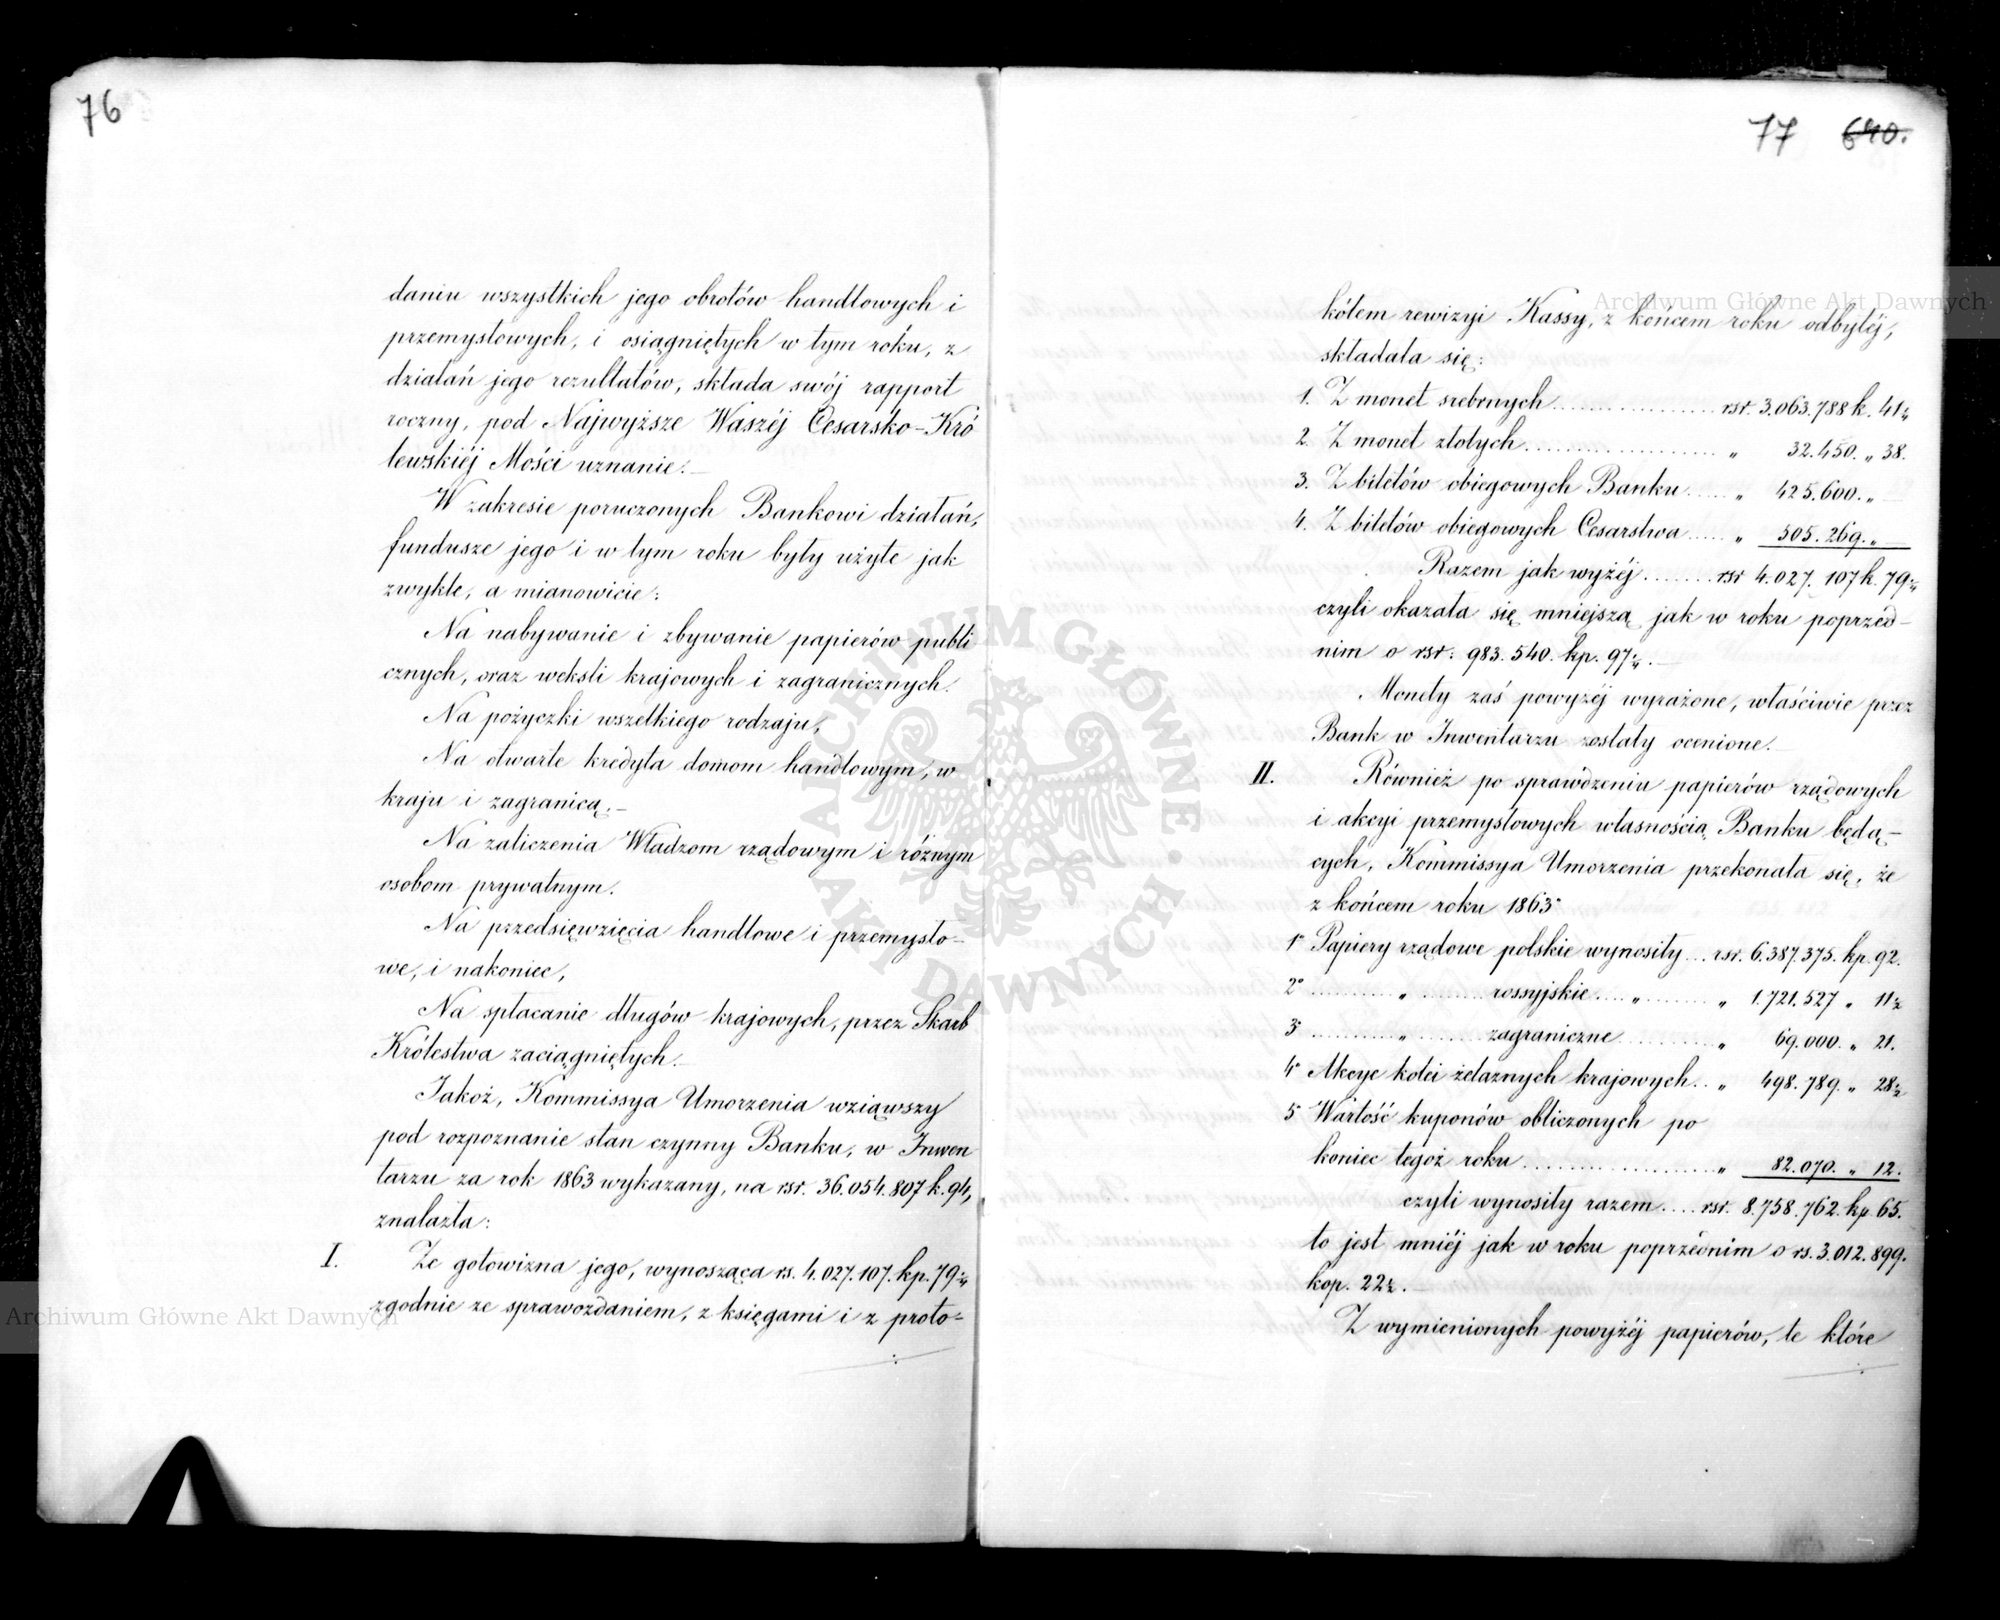 76
daniu wszystkich jego obrotów handlowych i
przemysłowych, i osiągniętych w tym roku, z
działań jego rezultatów, składa swój rapport
roczny, pod Najwyższe Waszéj Cesarsko-Kró
lewskiéj Mości uznanie.—
W zakresie poruczonych Bankowi działań,
fundusze jego i w tym roku były użyte jak
zwykle, a mianowicie:
Na nabywanie i zbywanie papierów publi
cznych, oraz weksli krajowych i zagranicznych.
Na pożyczki wszelkiego rodzaju,
Na otwarte kredyta domom handlowym, w
kraju i zagranicą.—
Na zaliczenia Władzom rządowym i różnym
osobom prywatnym.
Na przedsięwzięcia handlowe i przemysło-
we, i nakoniec,
Na spłacanie długów krajowych, przez Skarb
Królestwa zaciągniętych.—
Jakoż, Kommissya Umorzenia wziąwszy
pod rozpoznanie stan czynny Banku, w Inwen
tarzu za rok 1863 wykazany, na rsr. 36.054.807 k. 94,
znalazła:
I. Że gotowizna jego, wynosząca rs. 4.027.107. kp. 79
zgodnie ze sprawozdaniem, z księgami i z proto=
77 640.
kółem rewizyi Kassy, z końcem roku odbytéj,
składała się:
1. Z monet srebrnych rsr. 3.063.788 k. 41
2. Z monet złotych „ 32.450. „ 38.
3. Z biletów obiegowych Banku „ 425.600. „ —
4. Z biletów obiegowych Cesarstwa „ 505.269. „ —
Razem jak wyżéj rsr 4.027.107 k. 79
czyli okazała się mniejszą jak w roku poprzed-
nim o rsr: 983.540. kp. 97 —
Monety zaś powyżéj wyrażone, właściwie przez
Bank w Inwentarzu zostały ocenione.—
II. Również po sprawdzeniu papierów rządowych
i akcyi przemysłowych własnością Banku będą-
cych, Kommissya Umorzenia przekonała się, że
z końcem roku 1863
1° Papiery rządowe polskie wynosiły rsr. 6.387.375. kp. 92.
2° „ rossyjskie „ „ 1.721.527 „ 11½
3° „ zagraniczne „ 69.000. „ 21.
4° Akcye kolei żelaznych krajowych „ 498.789. „ 28½
5° Wartość kuponów obliczonych po
koniec tegoż roku „ 82.070. „ 12.
czyli wynosiły razem rsr. 8.758.762. kp. 65.
to jest mniéj jak w roku poprzednim o rs. 3.012.899.
kop. 22½.—
Z wymienionych powyżéj papierów, te które
Archiwum Główne Akt Dawnych
Archiwum Główne Akt Dawnych
ARCHIWUM GŁÓWNE AKT DAWNYCH